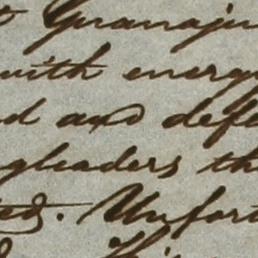 Guanaju
with energ
d and defe
gleaders th
ted. Unfort